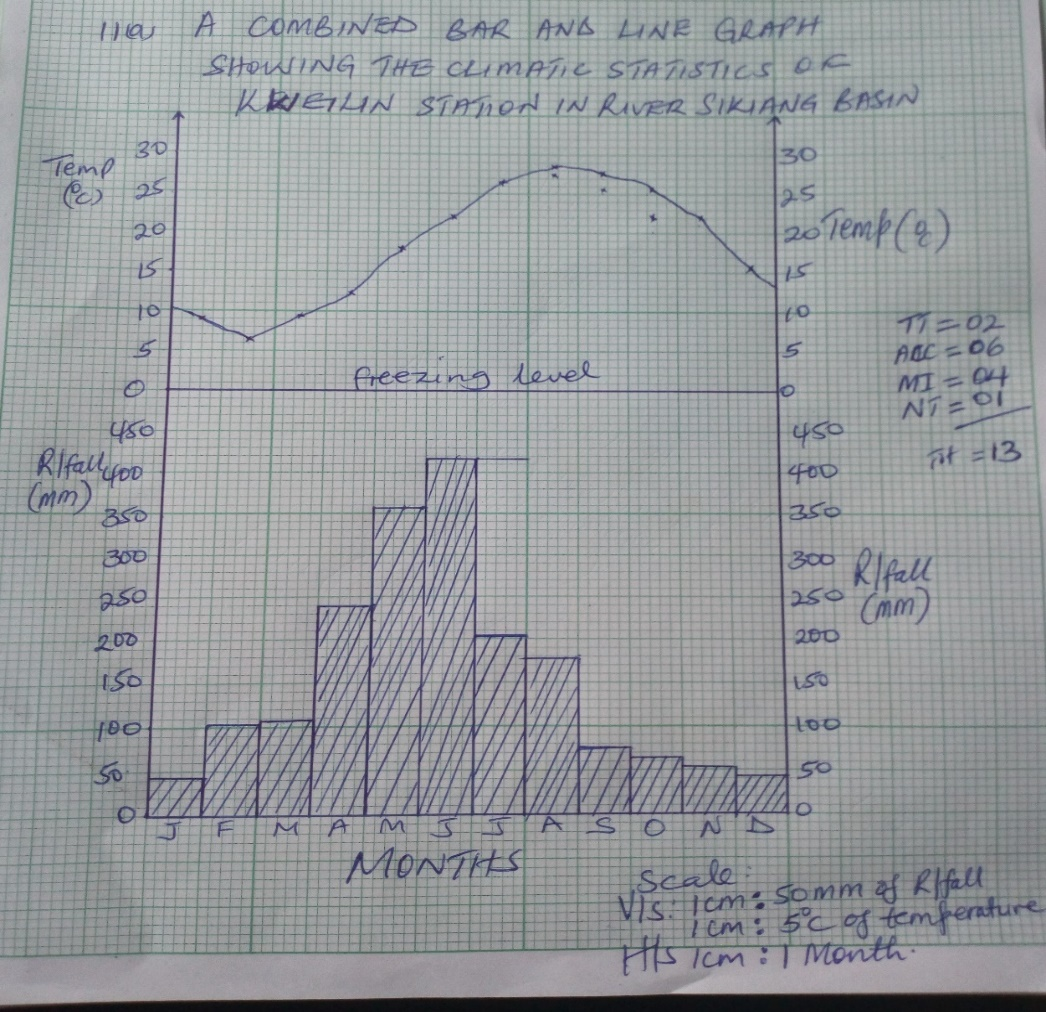 11(a) A COMBINED BAR AND LINE GRAPH
SHOWING THE CLIMATIC STATISTICS OF
KWEILIN STATION IN RIVER SIKIANG BASIN
Temp
(°C)
30
25
20
15
10
5
0
30
25
20
15
10
5
0
Temp (°C)
freezing level
TT = 02
ACC = 06
MI = 04
NT = 01
TH = 13
R/fall
(mm)
450
400
350
300
250
200
150
100
50
0
450
400
350
300
250
200
150
100
50
0
R/fall
(mm)
J F M A M J J A S O N D
MONTHS
Scale:
V/S: 1cm: 50mm of R/fall
1cm: 5°C of temperature
H/S 1cm: 1 Month.